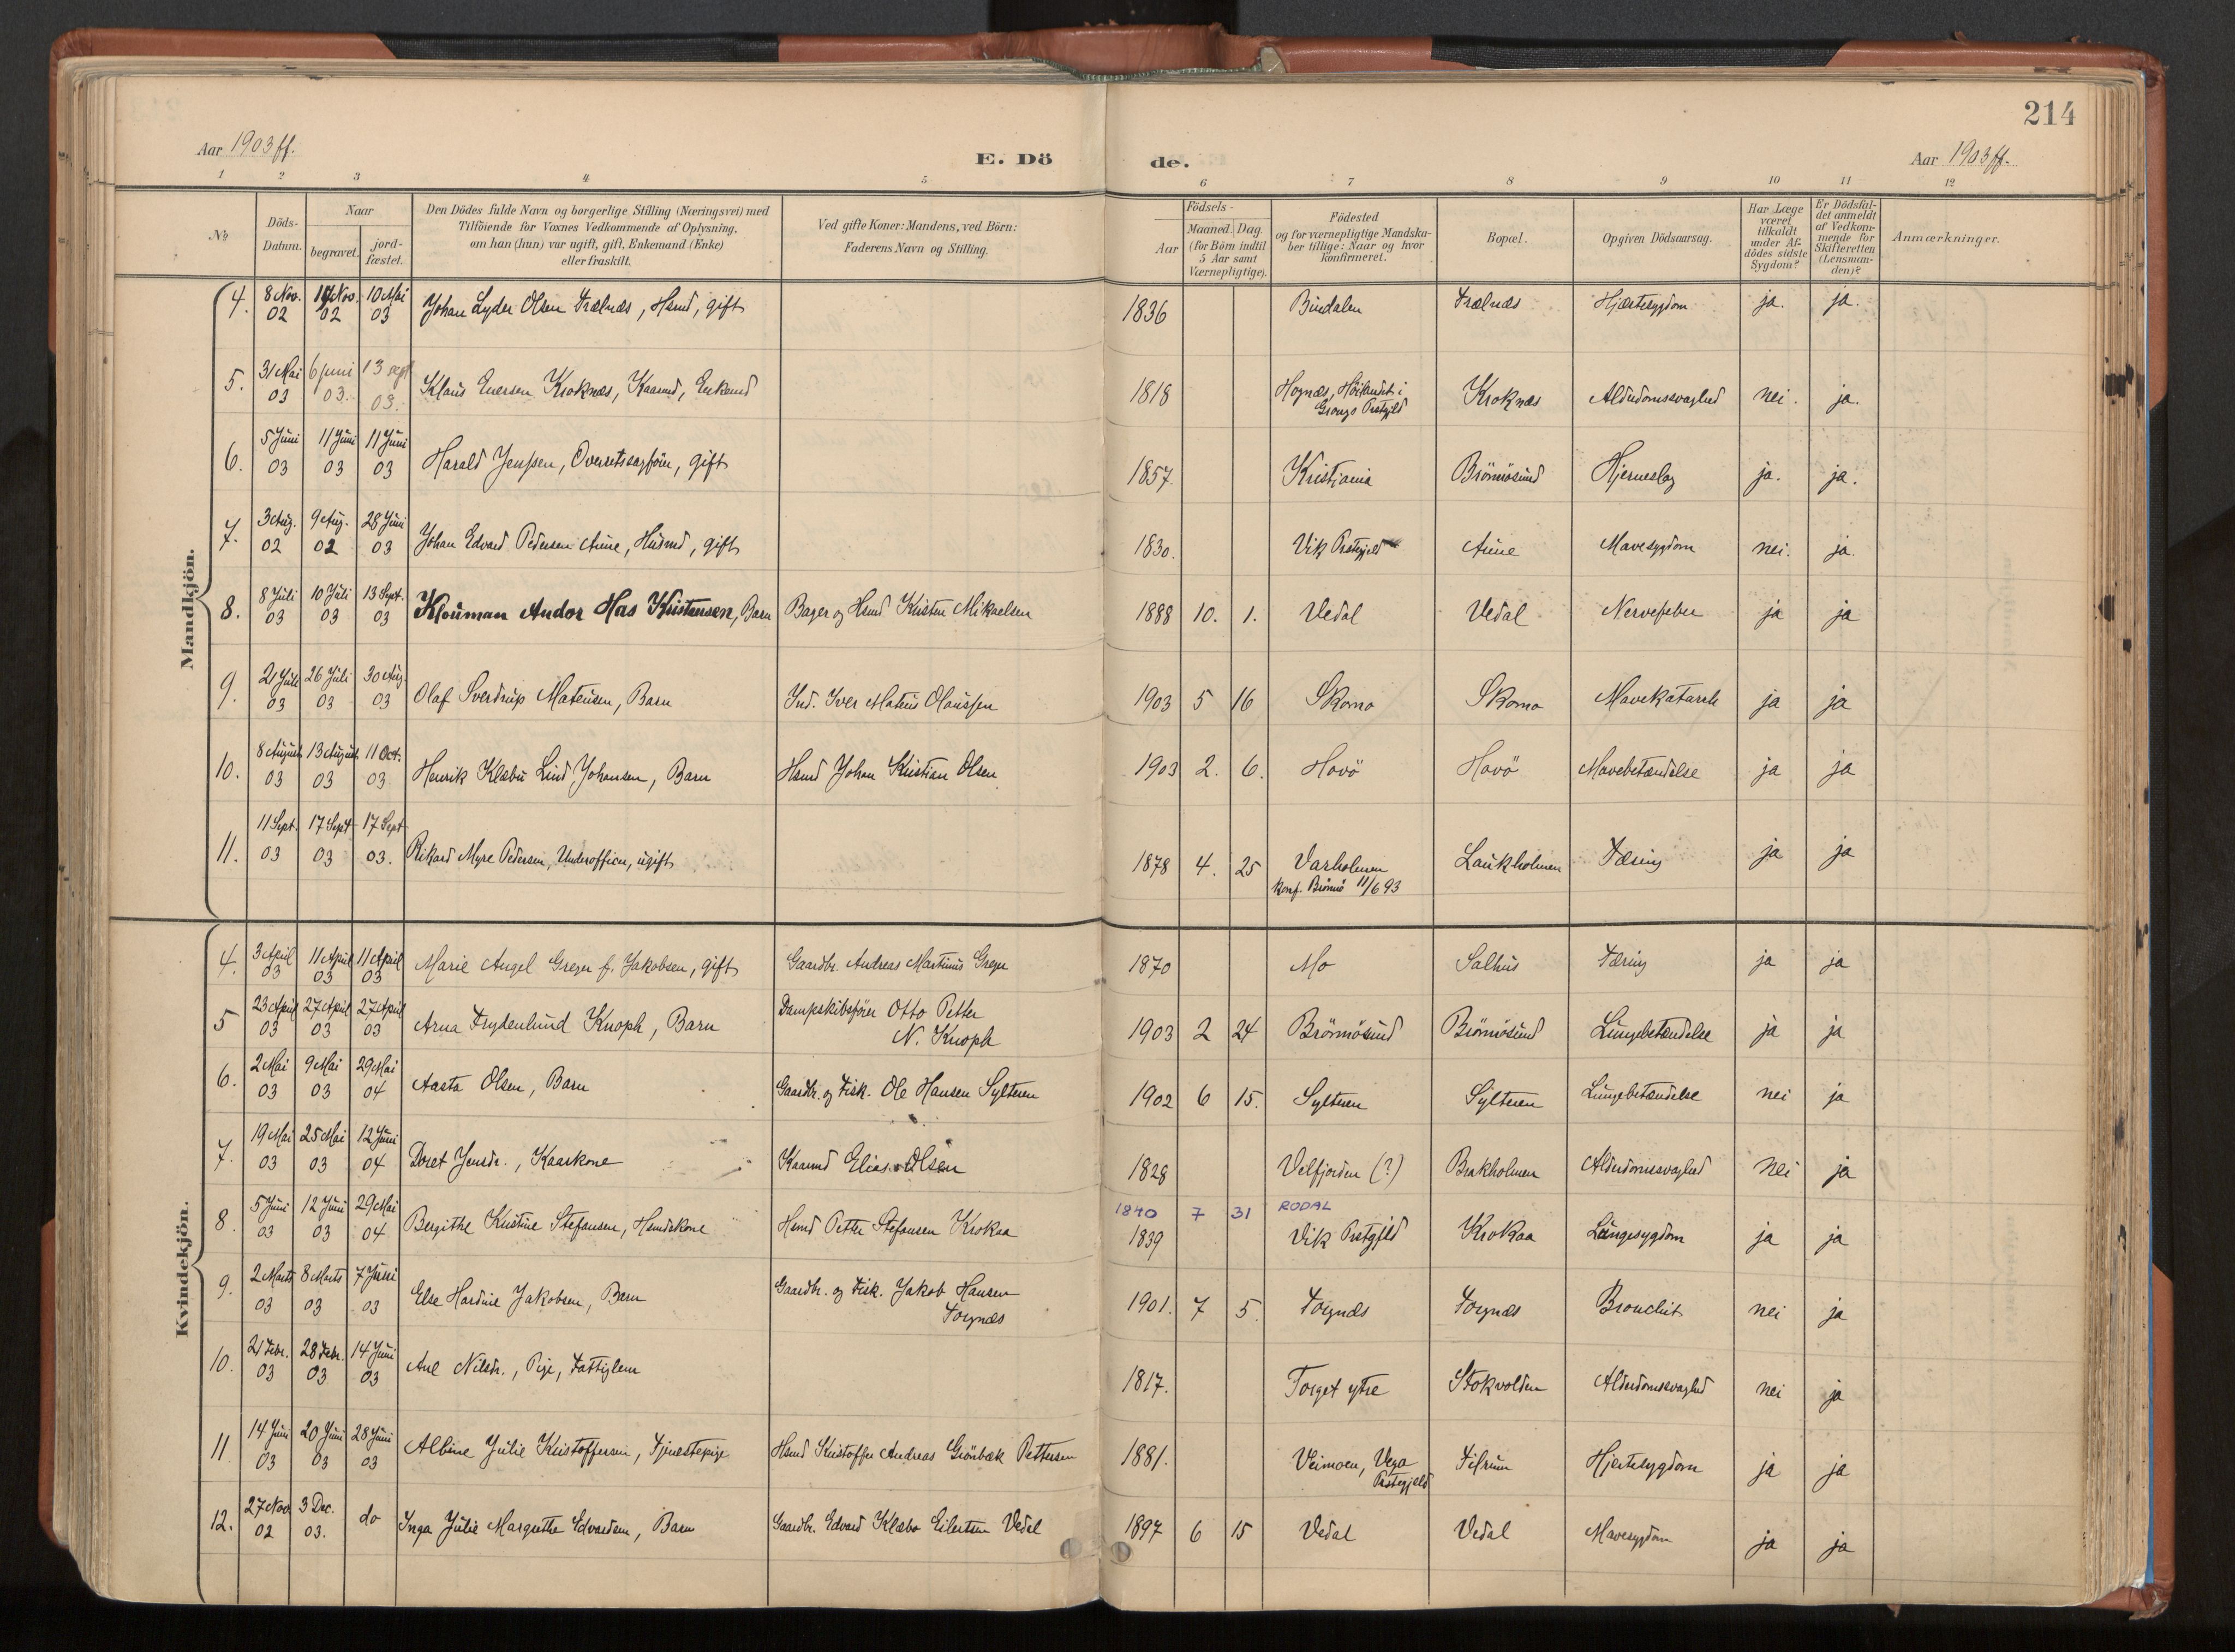 214
Aar 1903 ff.
E. Dö
de.
Aar 1903 ff.
1 2 3 4 5 6 7 8 9 10 11 12
No
Döds-Datum.
Naar
begravet.
jord-fæstet.
Den Dödes fulde Navn og borgerlige Stilling (Næringsvei) med
Tilföiende for Voxnes Vedkommende af Oplysning,
om han (hun) var ugift, gift, Enkemand (Enke)
eller fraskilt.
Ved gifte Koner: Mandens, ved Börn:
Faderens Navn og Stilling.
Födsels-
Aar
Maaned. Dag.
(for Börn indtil
5 Aar samt
Værnepligtige).
Födested
og for værnepligtige Mandska-
ber tillige: Naar og hvor
konfirmeret.
Bopæl.
Opgiven Dödsaarsag.
Har Læge
været
tilkaldt
under Af-
dödes sidste
Sygdom?
Er Dödsfal-
det anmeldt
af Vedkom-
mende for
Skifteretten
(Lensman-
den)?
Anmærkninger.
Mandkjön.
4. 8 Nov. 02 Nov. 02 10 Mai 03 Johan Lyder Olsen Trælnæs, Hsmd, gift 1836 Bindalen Trælnæs Hjærtesygdom ja. ja.
5. 31 Mai 03 6 juni 03. 13 sept 03. Klaus Enersen Kroknæs, Kaarmd, Enkemd 1818 Høilandet i Grongs Prstgjld Kroknæs Alderdomssvaghed nei. ja.
6. 5 Juni 03 11 Juni 03 11 Juni 03 Harald Jenssen, Overretssagförer, gift 1857. Kristiania Brönnösund Hjerneslag ja. ja.
7. 3 Aug. 02 9 Aug. 02 28 Juni 03 Johan Edvard Pedersen Aune, Husmd, gift 1830. Vik Prstegjeld Aune Mavesygdom nei. ja.
8. 8 Juli 03 10 Juli 03 13 Sept. 03 Klouman Andor Has Kristensen, Barn Bager og Hsmd Kristen Mikaelsen 1888 10. 1. Vedal Vedal Nervefeber ja ja
9. 21 Juli 03 26 Juli 03 30 Aug. 03 Olaf Sverdrup Mateusen, Barn Ind. Iver Mateus Olaussen 1903 5 16 Skomo Skomo Mavekatarrh ja ja
10. 8 August 03 13 August 03 11 Oct. 03. Henrik Klæbu Lind Johansen, Barn Hsmd Johan Kristian Olsen 1903 2. 6. Havö Havö Mavebetændelse ja ja
11. 11 Sept. 03 17 Sept 03 17 Sept 03. Rikard Myre Pedersen, Underofficer, ugift 1878 4. 25 Varholmen konf. Brönnö 11/6 93 Laukholmen Tæring ja ja
Kvindekjön.
4. 3 April 03 11 April 03 11 April 03 Marie Angel Greger f. Jakobsen, gift Gaardbr. Andreas Martinus Greger 1870 Mo Salhus Tæring ja ja
5 23 April 03 27 April 03 27 April 03 Arna Frydenlund Knoph, Barn Dampskibsförer Otto Petter N. Knoph 1903 2 24 Brönnösund Brönnösund Lungebetændelse ja ja
6. 2 Mai 03 9 Mai 03 29 Mai 04 Aasta Olsen, Barn Gaardbr. og Fisk. Ole Hansen Sylteren 1902 6 15. Sylteren Sylteren Lungebetændelse nei ja
7. 19 Mai 03 25 Mai 03 12 Juni 04 Doret Jensdr., Kaarkone Kaarmd Elias Olsen 1828 Velfjorden (?) Brakholmen Alderdomssvaghed nei ja
1840 7 31 RODAL
8. 5 Juni 03 12 Juni 03 29 Mai 04 Bergithe Kristine Stefansen, Hsmdskone Hsmd Petter Stefansen Krokaa 1839 Vik Prstgjld Krokaa Lungesygdom ja ja
9. 2 Marts 03 8 Marts 03 7 Juni 03 Else Hardine Jakobsen, Barn Gaardbr. og Fisk. Jakob Hansen Torgnæs 1901. 7 5. Torgnæs Torgnæs Bronchit nei ja
10. 21 Febr. 03 28 Febr. 03 14 Juni 03 Ane Nilsdr., Pige, Fattiglem 1817. Torget ytre Stokvolden Alderdomssvaghed nei ja
11 14 Juni 03 20 Juni 03 28 Juni 03 Albine Julie Kristoffersen, Tjenestepige Hsmd Kristoffer Andreas Grönbæk Pettersen 1881. Veimoen, Vega Prstegjeld Tilrum Hjertesygdom ja ja
12. 27 Nov. 02 3 Dec. 03. do Inga Julie Margrethe Edvardsen, Barn Gaardbr. Edvard Klæbo Eilertsen Vedal 1897 6 15 Vedal Vedal Mavesygdom ja ja